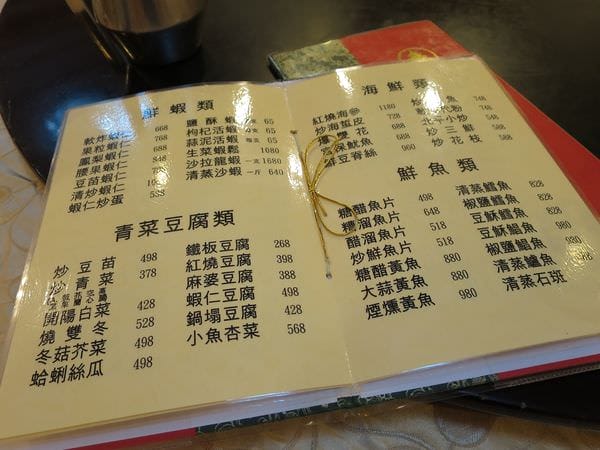 鮮蝦類
軟炸蝦仁 668
果粒蝦仁 768
鳳梨蝦仁 688
腰果蝦仁 848
豆苗蝦仁
清炒蝦仁
蝦仁炒蛋
鹽酥蝦 65
枸杞活蝦 65
蒜泥活蝦 65
生菜蝦鬆 1080
沙拉龍蝦 一支 1680
清蒸沙蝦 一斤 640
青菜豆腐類
炒豆苗 498
炒青菜 378
開陽白菜 428
燒雙冬 528
冬菇芥菜 498
蛤蜊絲瓜 498
鐵板豆腐 268
紅燒豆腐 398
麻婆豆腐 398
蝦仁豆腐 428
鍋塌豆腐 428
小魚杏菜 568
海鮮類
紅燒海參 1180
炒海蜇皮 788
爆雙花 688
宮保魷魚 588
豆脊絲
748
568
北平小炒 548
炒三鮮 748
炒花枝 688
鮮魚類
糖醋魚片 498
糟溜魚片 648
醋溜魚片 518
炒鮮魚片 518
糖醋黃魚 880
大蒜黃魚 880
煙燻黃魚 980
清蒸鱈魚 828
椒鹽鱈魚 828
豆酥鱈魚 828
豆酥鯧魚 980
椒鹽鯧魚
清蒸鱸魚
清蒸石斑